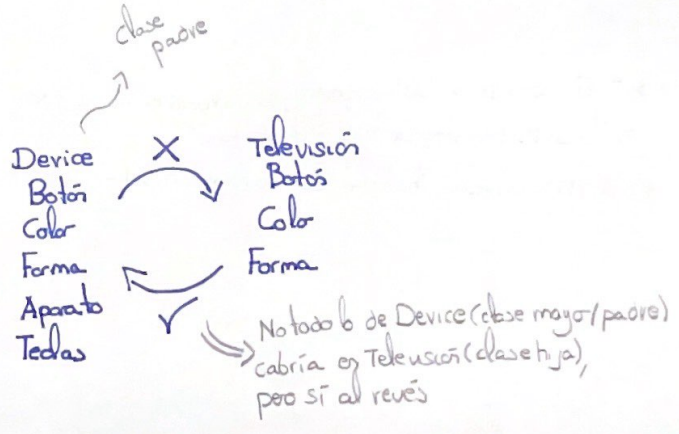 clase
padre
Device
Botón
Color
Forma
Aparato
Teclas
X
Televisión
Botós
Color
Forma
No todo lo de Device (clase mayor/padre)
cabría en Televisión (clase hija),
pero sí al revés